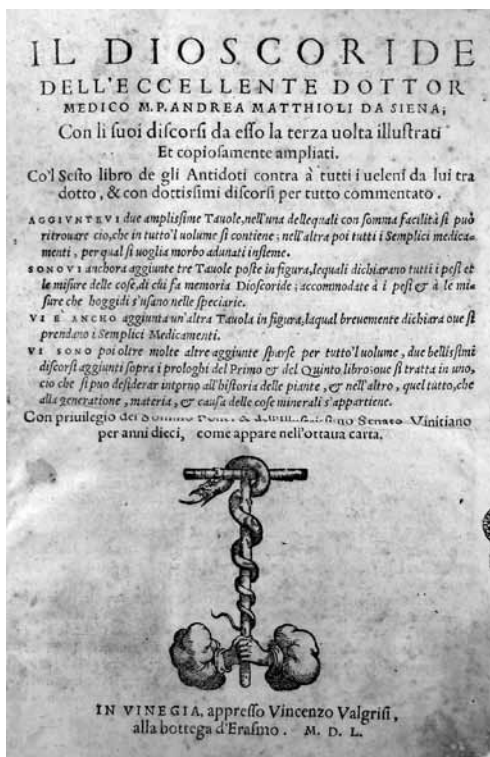 IL DIOSCORIDE
DELL'ECCELLENTE DOTTOR
MEDICO M.P. ANDREA MATTHIOLI DA SIENA;
Con li suoi discorsi da esso la terza uolta illustrati
Et copiosamente ampliati.
Co'l Sesto libro de gli Antidoti contra à tutti i ueleni da lui tra
dotto, & con dottissimi discorsi per tutto commentato.
AGGIVNTEVI due amplissime Tauole, nell'una dellequali con somma facilità si può
ritrouare cio, che in tutto'l uolume si contiene; nell'altra poi tutti i Semplici medica-
menti, per qual si uoglia morbo adunati insieme.
SONOVI anchora aggiunte tre Tauole poste in figura, lequali dichiarano tutti i pesi et
le misure delle cose, di chi fa memoria Dioscoride; accommodate à i pesi & à le mi-
sure che hoggidi s'usano nelle speciarie.
VI E ANCHO aggiunta un'altra Tauola in figura, laqual breuemente dichiara oue si
prendano i Semplici Medicamenti.
VI SONO poi oltre molte altre aggiunte sparse per tutto'l uolume, due bellissimi
discorsi aggiunti sopra i prologhi del Primo & del Quinto libro; oue si tratta in uno,
cio che si puo desiderar intorno all'historia delle piante, & nell'altro, quel tutto, che
alla generatione, materia, & causa delle cose minerali s'appartiene.
Con priuilegio del Senato Vinitiano
per anni dieci, come appare nell'ottaua carta.
IN VINEGIA, appresso Vincenzo Valgrisi,
alla bottega d'Erasmo. M. D. L.